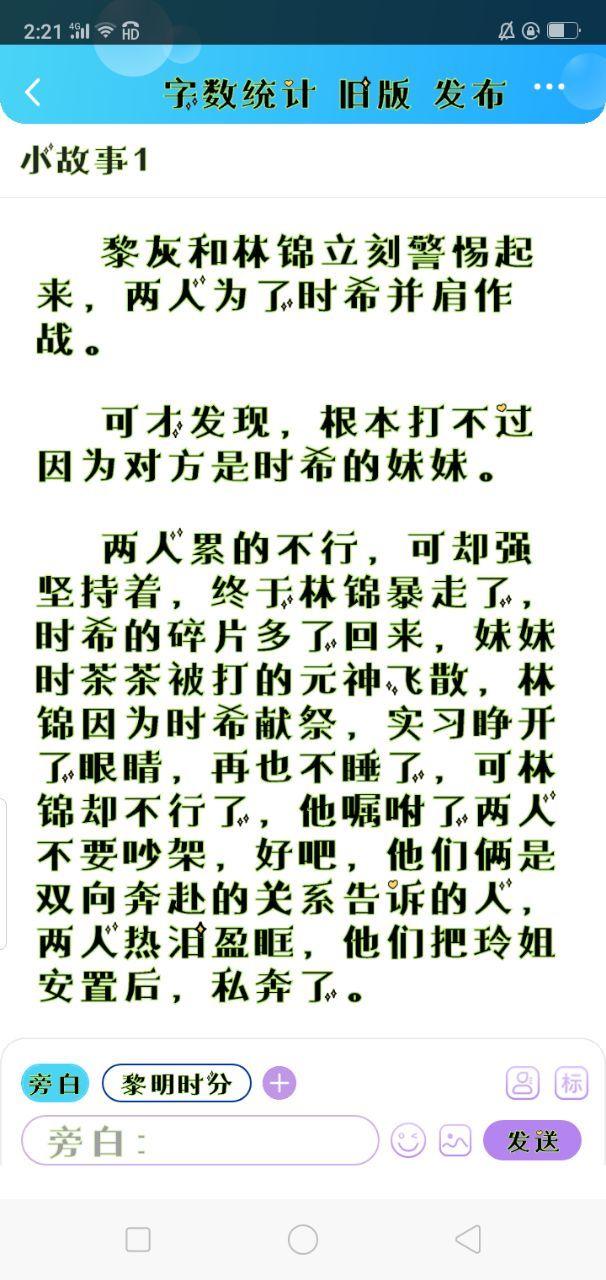 2:21 4G HD
字数统计 旧版 发布
小故事1
黎灰和林锦立刻警惕起
来，两人为了时希并肩作
战。
可才发现，根本打不过
因为对方是时希的妹妹。
两人累的不行，可却强
坚持着，终于林锦暴走了，
时希的碎片多了回来，妹妹
时茶茶被打的元神飞散，林
锦因为时希献祭，实习睁开
了眼睛，再也不睡了，可林
锦却不行了，他嘱咐了两人
不要吵架，好吧，他们俩是
双向奔赴的关系告诉的人，
两人热泪盈眶，他们把玲姐
安置后，私奔了。
旁白 黎明时分
标
旁白：
发送